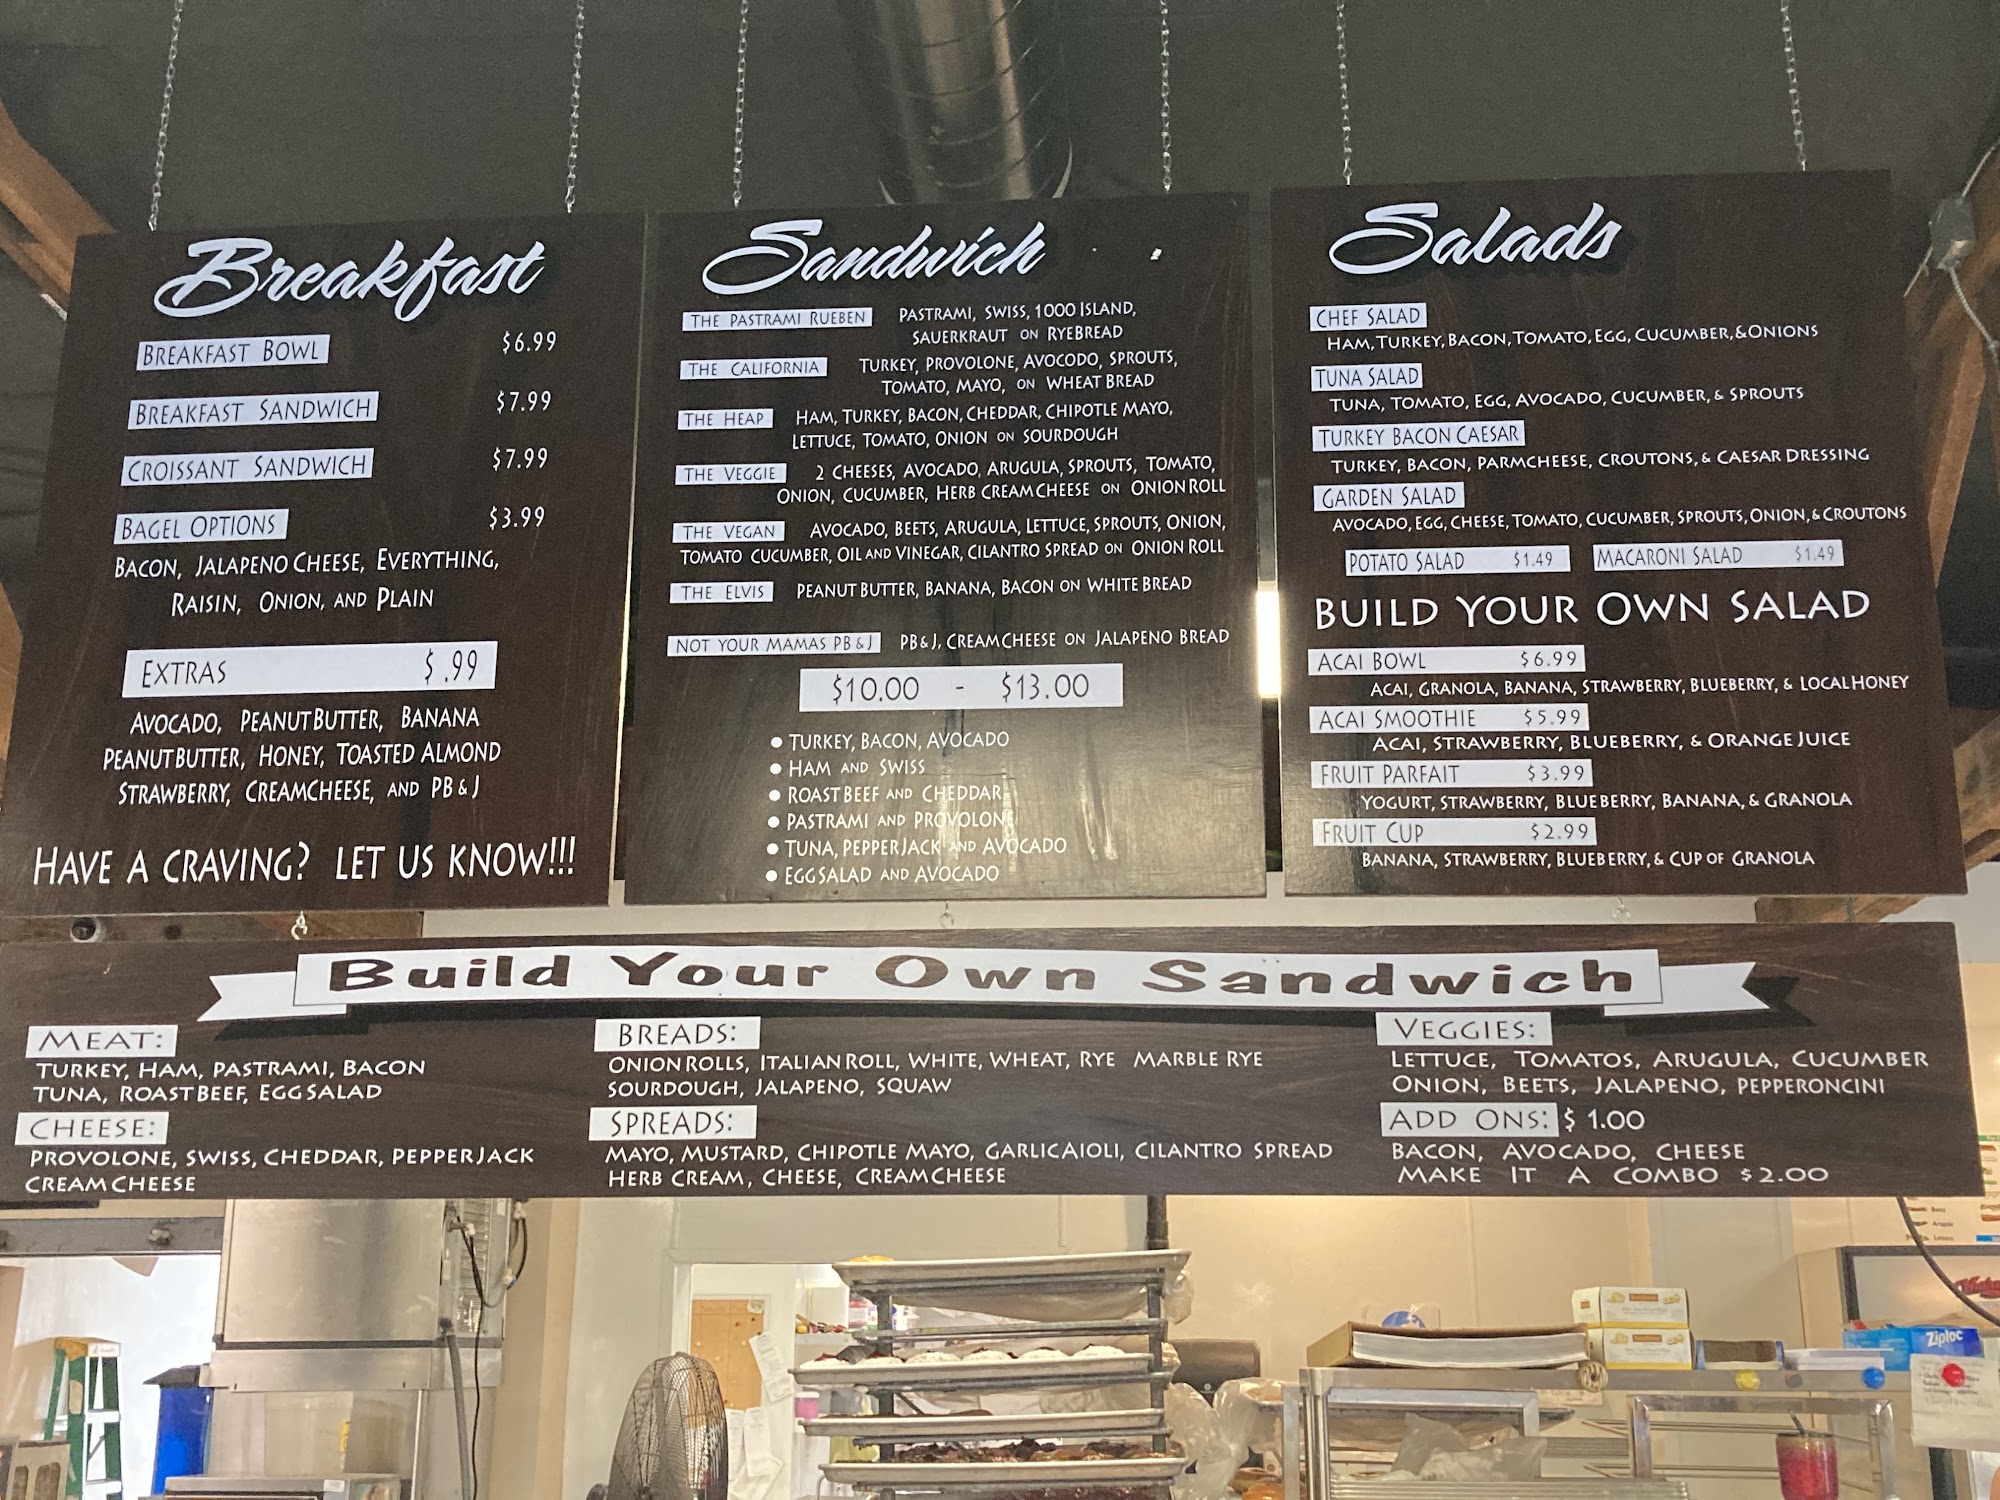 Breakfast
BREAKFAST BOWL $6.99
BREAKFAST SANDWICH $7.99
CROISSANT SANDWICH $7.99
BAGEL OPTIONS $3.99
BACON, JALAPENO CHEESE, EVERYTHING,
RAISIN, ONION, AND PLAIN
EXTRAS $.99
AVOCADO, PEANUT BUTTER, BANANA
PEANUT BUTTER, HONEY, TOASTED ALMOND
STRAWBERRY, CREAMCHEESE, AND PB & J
HAVE A CRAVING? LET US KNOW!!!
Sandwich
THE PASTRAMI RUEBEN PASTRAMI, SWISS, 1000 ISLAND,
SAUERKRAUT ON RYEBREAD
THE CALIFORNIA TURKEY, PROVOLONE, AVOCODO, SPROUTS,
TOMATO, MAYO, ON WHEAT BREAD
THE HEAP HAM, TURKEY, BACON, CHEDDAR, CHIPOTLE MAYO,
LETTUCE, TOMATO, ONION ON SOURDOUGH
THE VEGGIE 2 CHEESES, AVOCADO, ARUGULA, SPROUTS, TOMATO,
ONION, CUCUMBER, HERB CREAM CHEESE ON ONION ROLL
THE VEGAN AVOCADO, BEETS, ARUGULA, LETTUCE, SPROUTS, ONION,
TOMATO CUCUMBER, OIL AND VINEGAR, CILANTRO SPREAD ON ONION ROLL
THE ELVIS PEANUT BUTTER, BANANA, BACON ON WHITE BREAD
NOT YOUR MAMAS PB & J PB & J, CREAMCHEESE ON JALAPENO BREAD
$10.00 - $13.00
• TURKEY, BACON, AVOCADO
• HAM AND SWISS
• ROAST BEEF AND CHEDDAR
• PASTRAMI AND PROVOLONE
• TUNA, PEPPER JACK AND AVOCADO
• EGG SALAD AND AVOCADO
Salads
CHEF SALAD
HAM, TURKEY, BACON, TOMATO, EGG, CUCUMBER, & ONIONS
TUNA SALAD
TUNA, TOMATO, EGG, AVOCADO, CUCUMBER, & SPROUTS
TURKEY BACON CAESAR
TURKEY, BACON, PARMCHEESE, CROUTONS, & CAESAR DRESSING
GARDEN SALAD
AVOCADO, EGG, CHEESE, TOMATO, CUCUMBER, SPROUTS, ONION, & CROUTONS
POTATO SALAD $1.49 MACARONI SALAD $1.49
BUILD YOUR OWN SALAD
ACAI BOWL $6.99
ACAI, GRANOLA, BANANA, STRAWBERRY, BLUEBERRY, & LOCAL HONEY
ACAI SMOOTHIE $5.99
ACAI, STRAWBERRY, BLUEBERRY, & ORANGE JUICE
FRUIT PARFAIT $3.99
YOGURT, STRAWBERRY, BLUEBERRY, BANANA, & GRANOLA
FRUIT CUP $2.99
BANANA, STRAWBERRY, BLUEBERRY, & CUP OF GRANOLA
Build Your Own Sandwich
MEAT:
TURKEY, HAM, PASTRAMI, BACON
TUNA, ROAST BEEF, EGG SALAD
CHEESE:
PROVOLONE, SWISS, CHEDDAR, PEPPER JACK
CREAM CHEESE
BREADS:
ONION ROLLS, ITALIAN ROLL, WHITE, WHEAT, RYE MARBLE RYE
SOURDOUGH, JALAPENO, SQUAW
SPREADS:
MAYO, MUSTARD, CHIPOTLE MAYO, GARLIC AIOLI, CILANTRO SPREAD
HERB CREAM, CHEESE, CREAMCHEESE
VEGGIES:
LETTUCE, TOMATOS, ARUGULA, CUCUMBER
ONION, BEETS, JALAPENO, PEPPERONCINI
ADD ONS: $ 1.00
BACON, AVOCADO, CHEESE
MAKE IT A COMBO $2.00
Ziploc